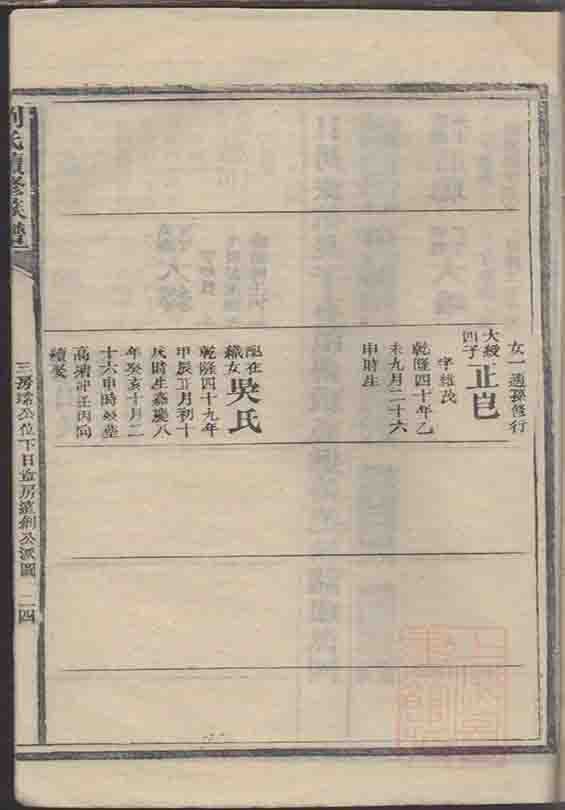 女一適孫修行
大綬四子
正邑
字維茂
乾隆四十年乙
未九月二十六
申時生
配在
織女
吳氏
乾隆四十九年
甲辰正月初十
辰時生嘉慶八
年癸亥十月二
十六申時歿塟
高塘冲壬丙向
續娶
劉氏續修族譜
三房瑞公位下日章房遠創公派圖
二四